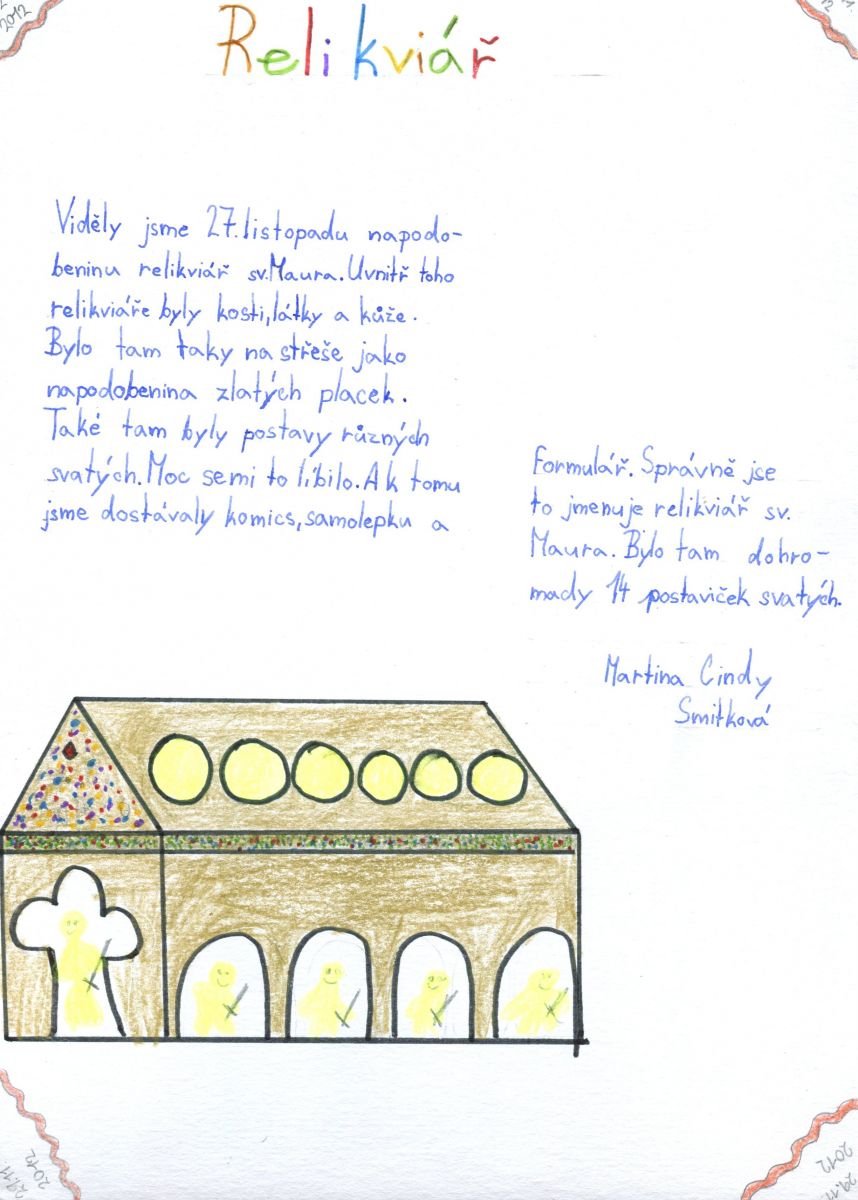 2012
Relikviář
Viděly jsme 27.listopadu napodo-
beninu relikviář sv.Maura.Uvnitř toho
relikviáře byly kosti,látky a kůže.
Bylo tam taky na střeše jako
napodobenina zlatých placek.
Také tam byly postavy různých
svatých.Moc semi to líbilo.A k tomu
jsme dostávaly komics,samolepku a
Formulář. Správně jse
to jmenuje relikviář sv.
Maura. Bylo tam dohro-
mady 14 postaviček svatých.
Martina Cindy
Smitková
29.11.
2012
2012
29.11.